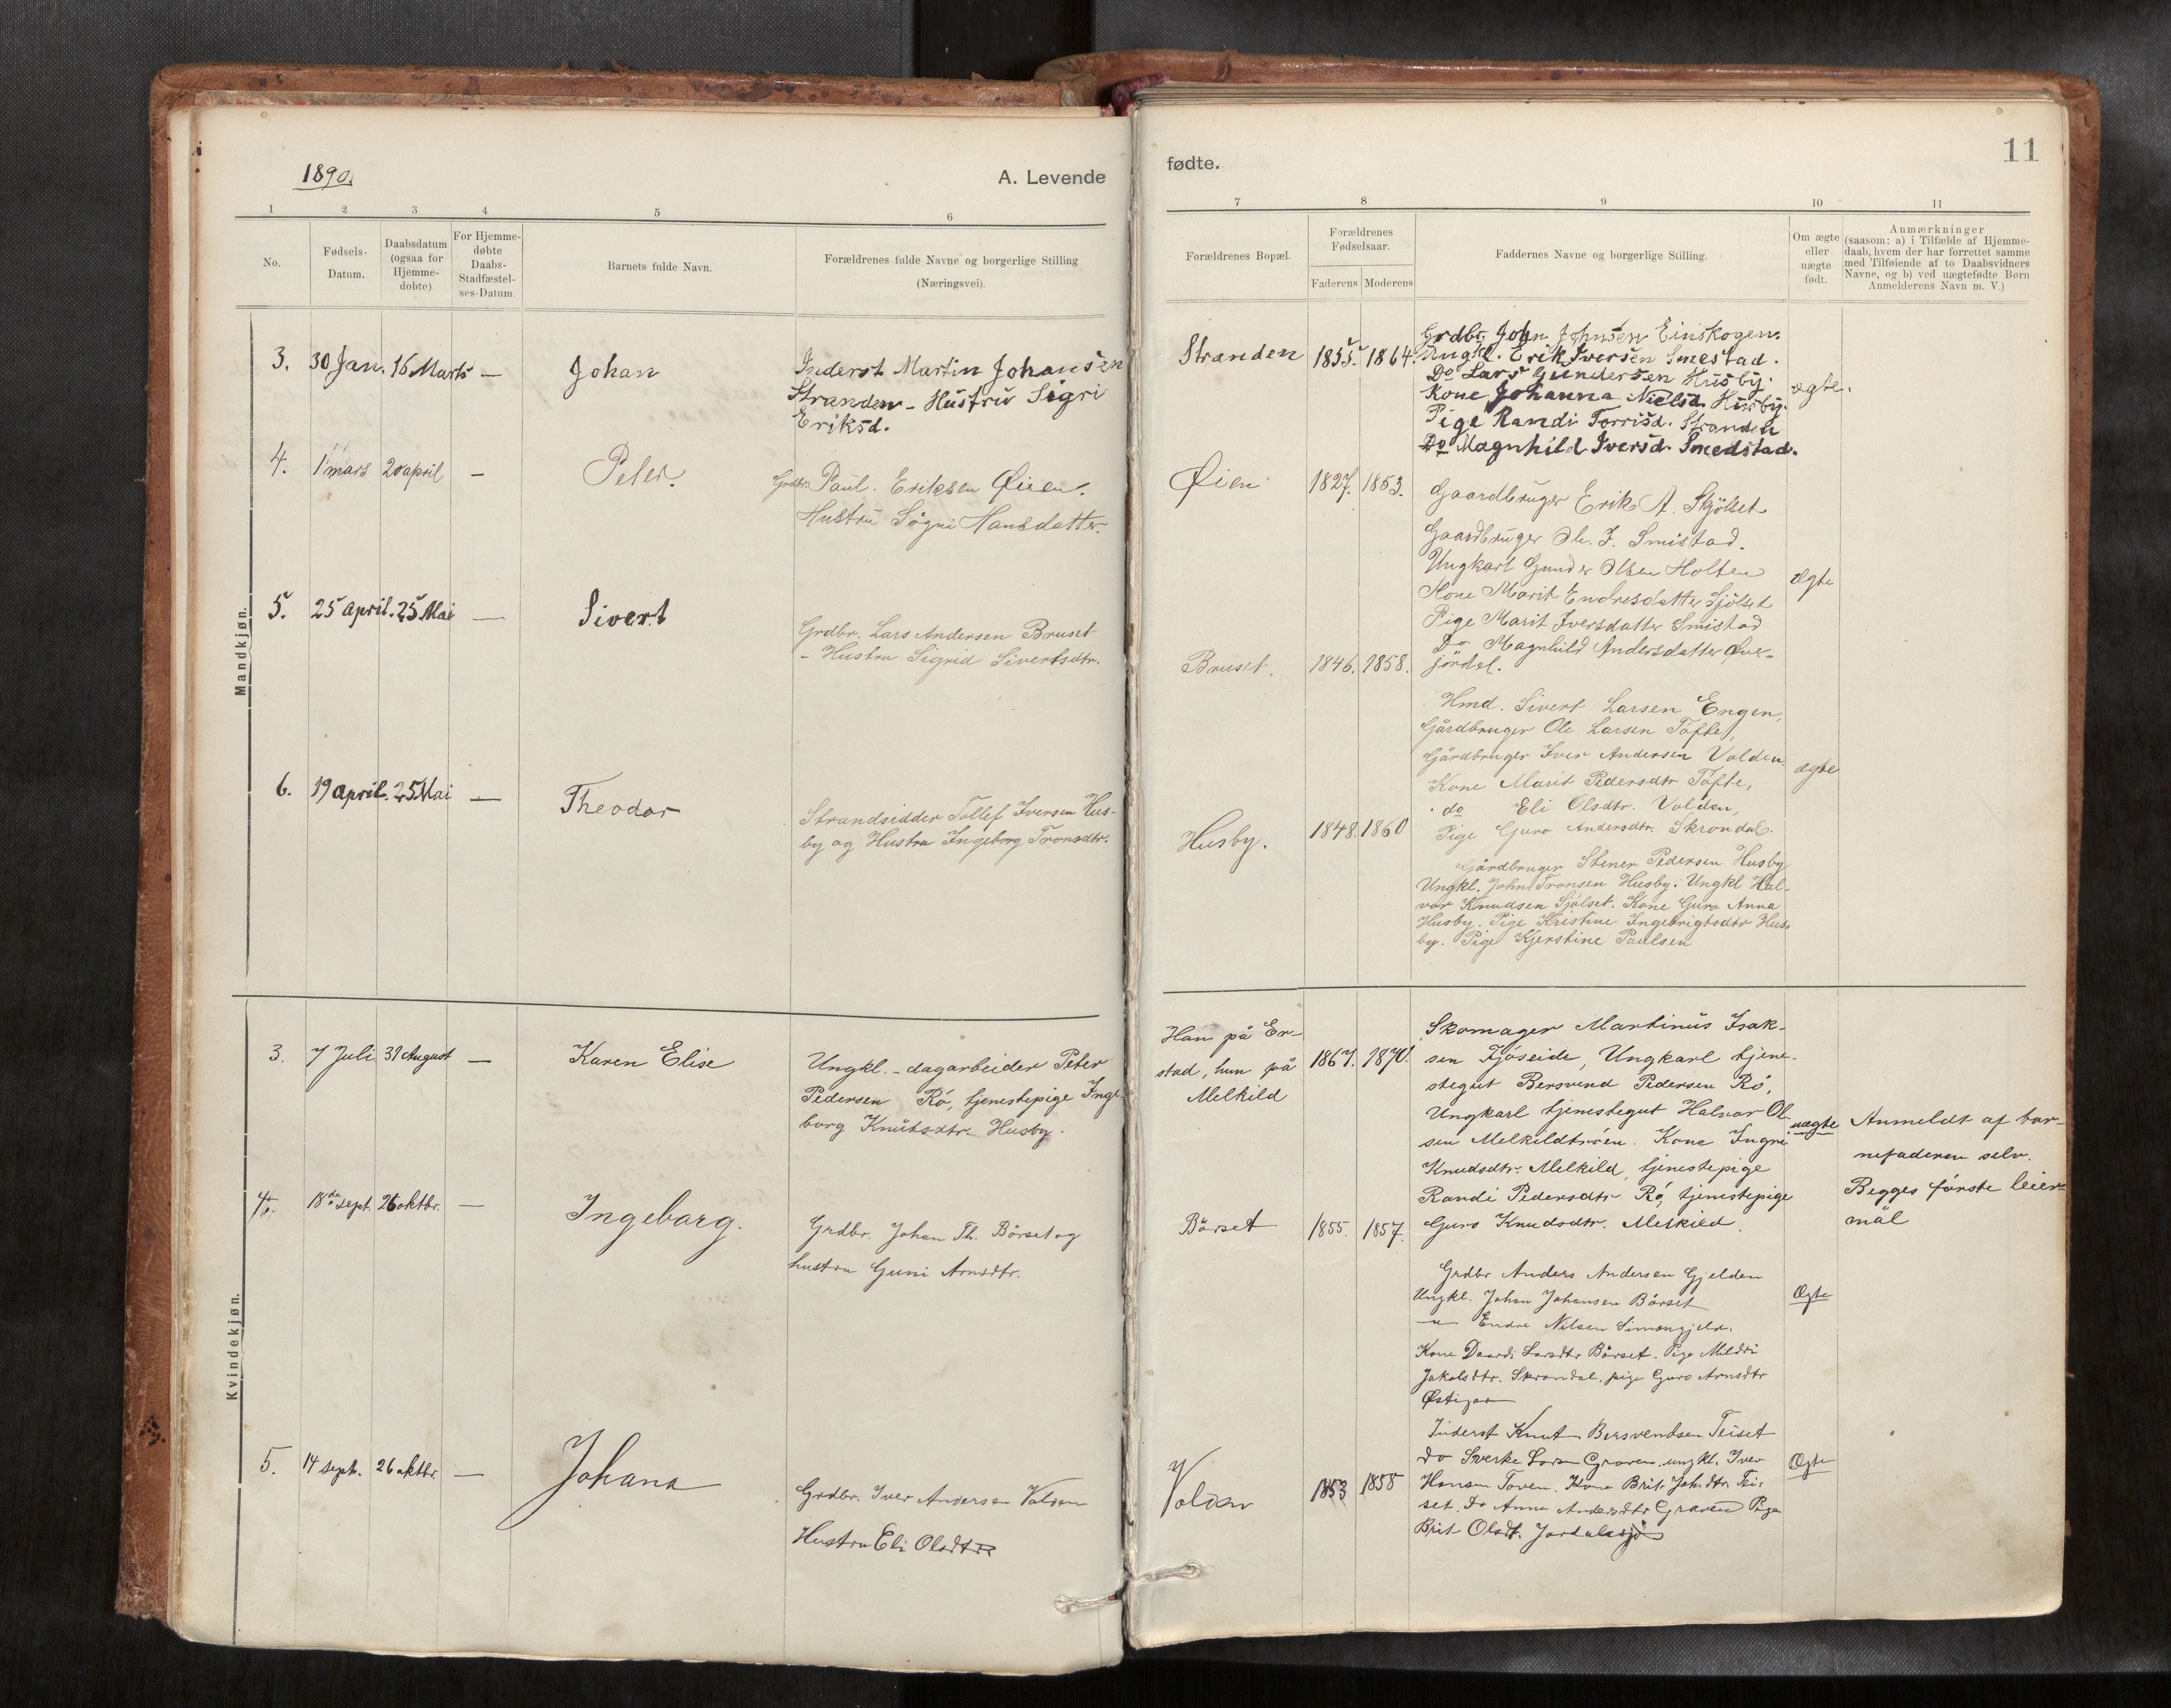 1890.
A. Levende
1 2 3 4 5 6
No.
Fødsels-
Datum.
Daabsdatum
(ogsaa for
Hjemme-
døbte)
For Hjemme-
døbte
Daabs-
Stadfæstel-
ses-Datum.
Barnets fulde Navn.
Forældrenes fulde Navne og borgerlige Stilling
(Næringsvei).
Mandkjøn.
3. 30 Jan. 16 Marts — Johan
Inderst Martin Johansen
Stranden - Hustru Sigri
Eriksd.
4. 1 mars 20 april — Peter.
Grdbr. Paul. Eriksen Øien.
Hustru Sögni Hansdatter.
5. 25 april. 25 Mai — Sivert
Grdbr. Lars Andersen Bruset
- Hustru Sigrid Sivertsdtr.
6. 19 april. 25 Mai — Theodor
Strandsidder Tollef Iversen Hus-
by og Hustru Ingeborg Tronsdtr.
Kvindekjøn.
3. 7 Juli 31 August — Karen Elise
Ungkl. - dagarbeider Peter
Pedersen Rö, tjenestepige Inge-
borg Knutsdtr. Husby.
4. 18de sept. 26 oktbr. — Ingeborg.
Grdbr. Johan Th. Börset og
hustru Guni Arnsdtr.
5. 14 sept. 26 oktbr — Johana
Grdbr. Iver Andersen Valden
Hustru Eli Olsdtr
fødte.
11
7 8 9 10 11
Forældrenes Bopæl.
Forældrenes
Fødselsaar.
Faderens Moderens
Faddernes Navne og borgerlige Stilling.
Om ægte
eller
uægte
født.
Anmærkninger
(saasom: a) i Tilfælde af Hjemme-
daab, hvem der har forrettet samme
med Tilføiende af to Daabsvidners
Navne, og b) ved uægtefødte Børn
Anmelderens Navn m. V.)
Stranden 1855. 1864.
Grdbr. John Johnsen Einskogen.
Ungkl. Erik Iversen Smestad.
Do Lars Gundersen Husby.
Kone Johanna Nielsd. Husby.
ægte.
Pige Randi Torrisd. Stranden
Do Magnhild Iversd. Smedstad.
Øien 1827. 1853.
Gaardbruger Erik A. Skjölset
Gaardbruger Ole. I. Smistad.
Ungkarl Gunder Olsen Holten
ægte
Kone Marit Endresdatter Sjölset
Pige Marit Iversdatter Smistad
Do Magnhild Andersdatter Over-
jördel.
Bruset. 1846. 1858.
Hmd. Sivert Larsen Engen,
Gårdbruger Ole Larsen Töfte,
Gårdbruger Iver Andersen Valden.
ægte
Kone Marit Pedersdtr Töfte,
do Eli Olsdtr. Valden,
Pige Guro Andersdtr. Skrondal.
Husby. 1848. 1860
Gårdbruger Stener Pedersen Husby
Ungkl. John Tronsen Husby. Ungkl Hal-
vor Knudsen Sjölset. Kone Guro Anna
Husby. Pige Kristine Ingebrigtsdtr Hus-
by. Pige Kjerstine Paulsen
Han på Er-
stad, hun på
Melkild
1867. 1870.
Skomager Martinus Isak-
sen Fjöseide, Ungkarl tjene-
stegut Bersvend Pedersen Rö,
Ungkarl tjenestegut Halvar Ol-
sen Melkildtröen. Kone Ingri
Knudsdtr. Melkild, tjenestepige
Randi Pedersdtr Rö, tjenestepige
Guro Knudsdtr. Melkild.
uægte
Anmeldt af bar-
nefaderen selv.
Begges förste leier-
mål
Börset 1855. 1857.
Grdbr Anders Andersen Gjelden
Ungkl. Johan Johansen Börset
— Endre Nilsen Simongjeld.
Kone Daardi Larsdtr Börset. Pige Mildri
Jakobsdtr. Skrondal. pige Guro Arnsdtr
Ægte
Valden 1853 1858
Inderst Knut Bersvendsen Teiset
do Sverke Larsen Graven. ungkl. Iver
Hansen Toven. Kone Brit Johsdtr Tei-
set. do Anne Andersdtr Graven Pige
Brit Olsdt. Jordalssjö
Ægte